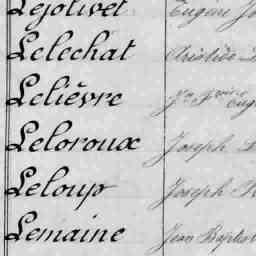 Lejolivet Eugène
Lelechat Aristide
Lelièvre Jn
Leloroux Joseph
Leloup Joseph
Lemaine Jean Baptist